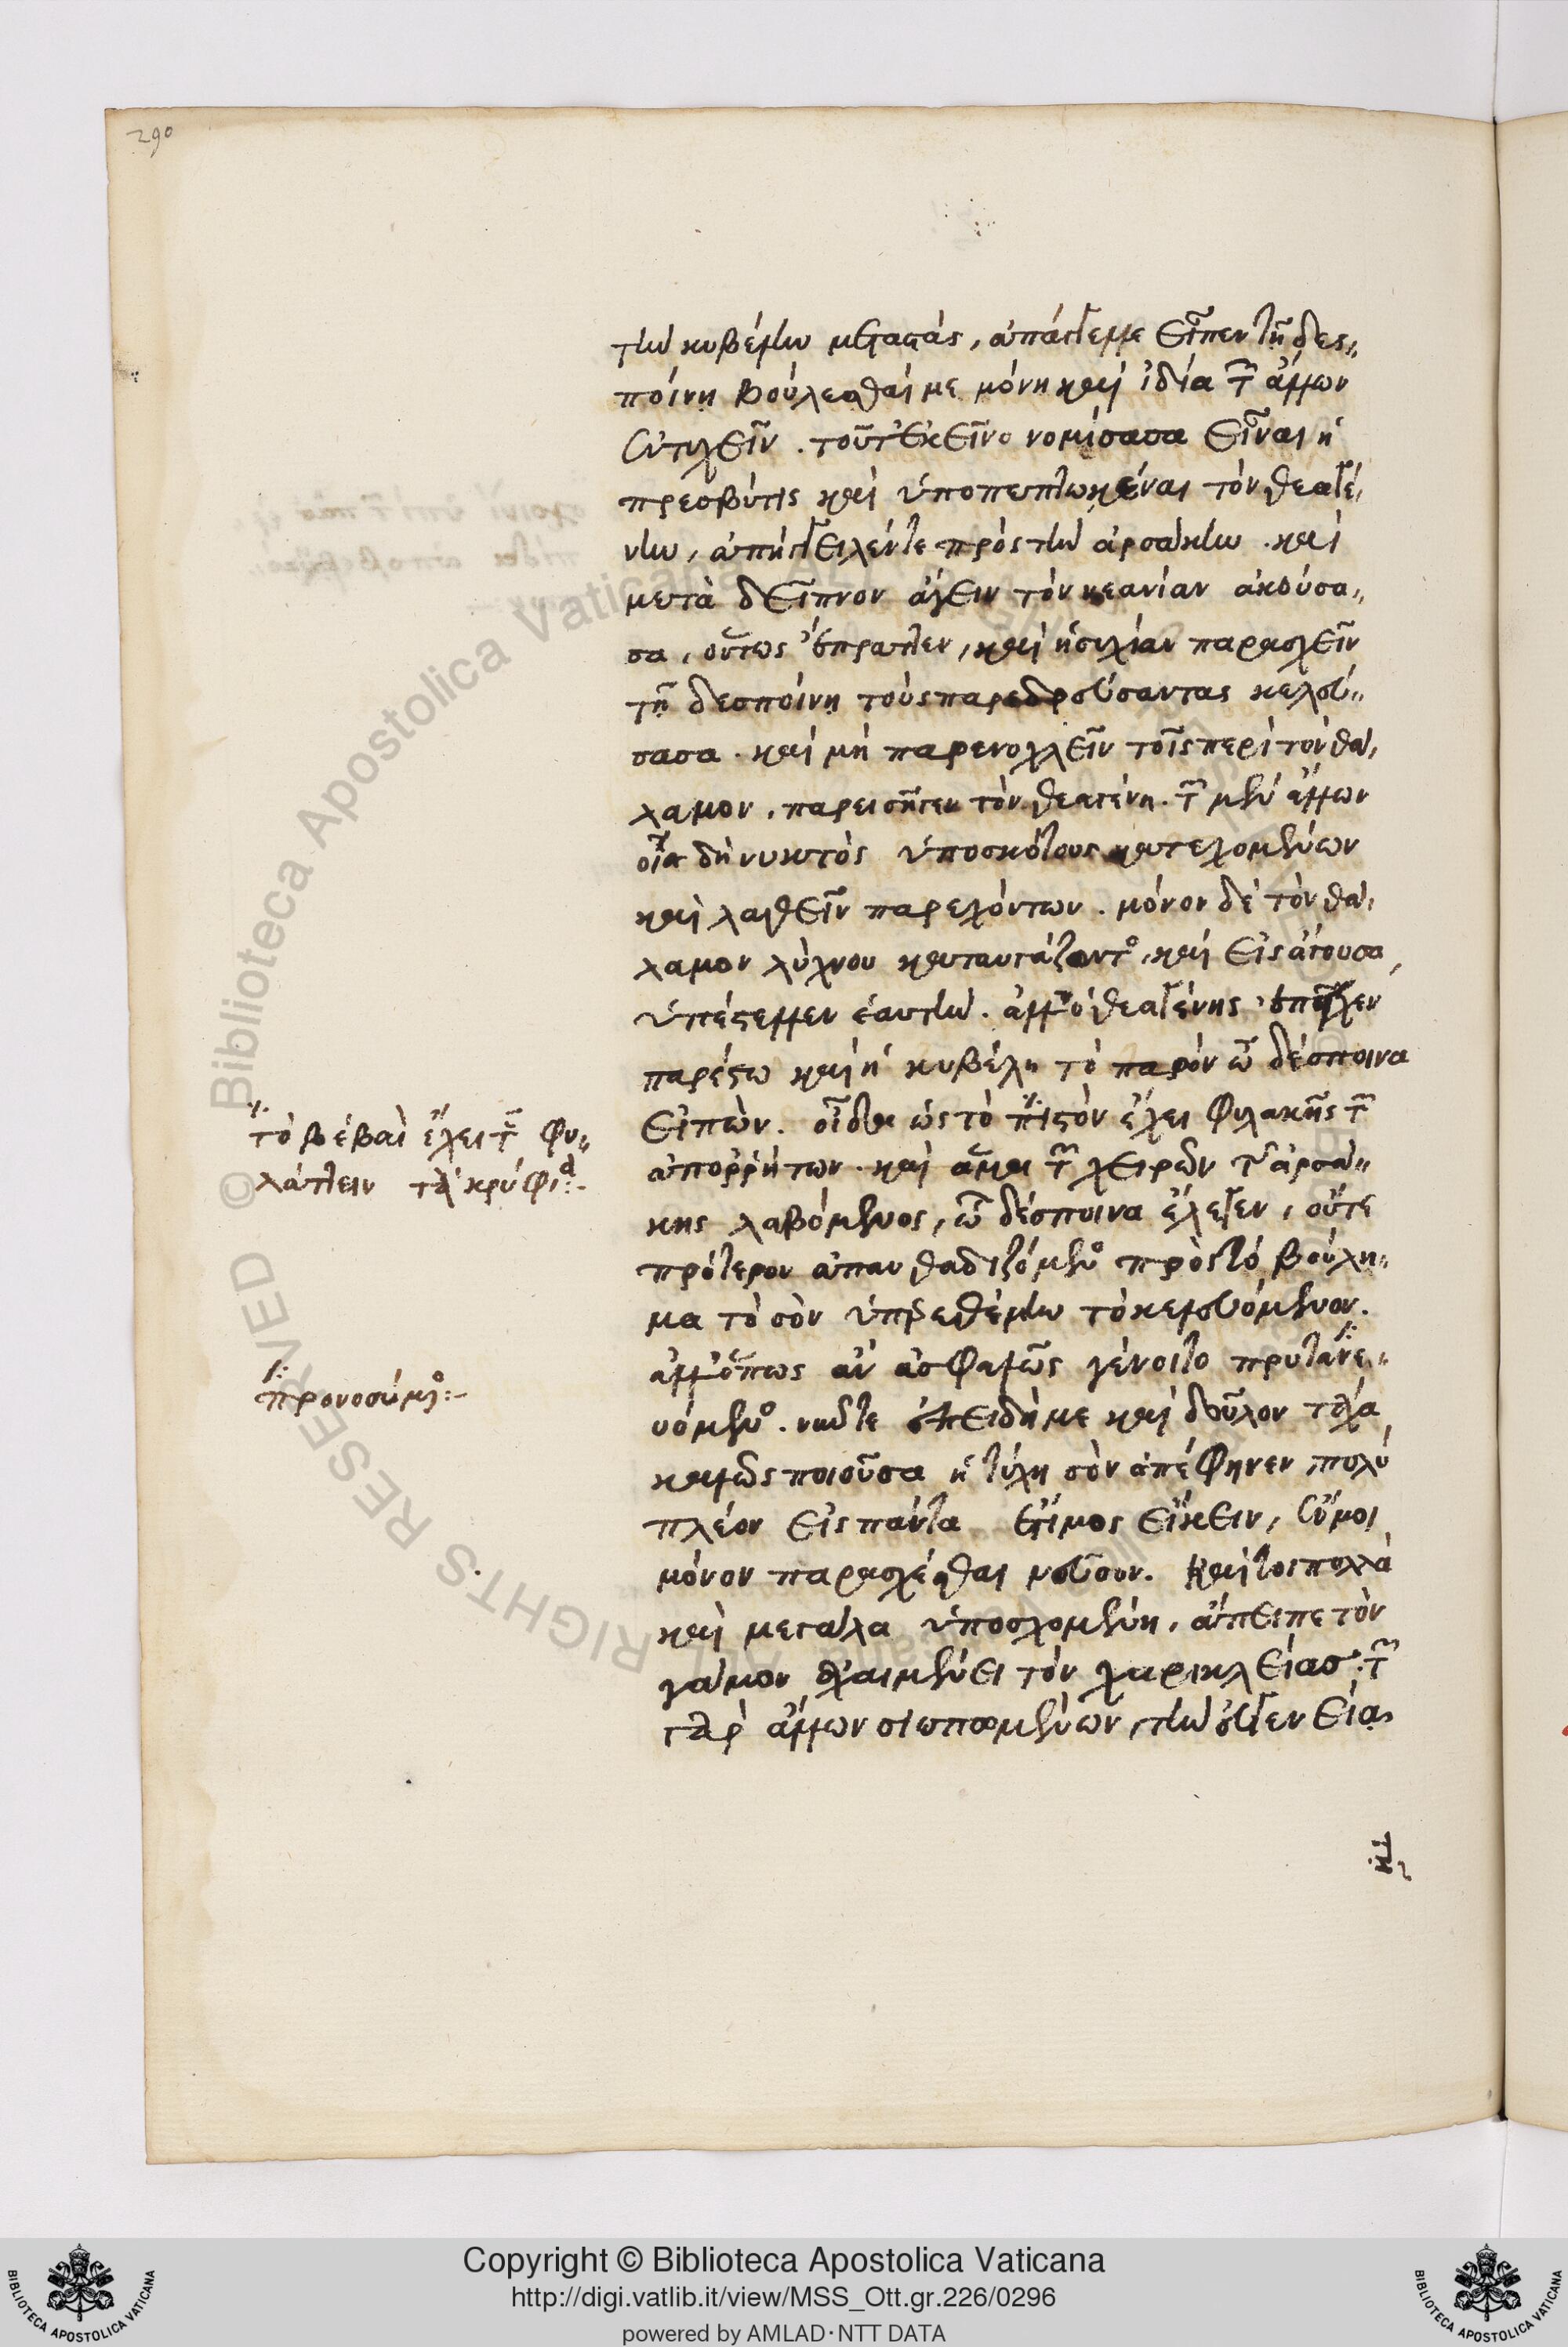 290
τὴν κυβέλην μεταστὰς, ἀπάγγελλε εἶπεν τῇ δεσ„
ποίνῃ βούλεσθαί με μόνῃ καὶ ἰδία τῶν ἄλλων
ἐντυχεῖν. τοῦτ' ἐκεῖνο νομίσασα εἶναι ἡ
πρεσβύτις καὶ ὑποπεπτωκέναι τὸν θεαγέ„
νην, ἀπήγγειλέν τε πρὸς τὴν ἀρσάκην. καὶ
μετὰ δεῖπνον ἄγειν τὸν νεανίαν ἀκούσα„
σα, οὕτως ἔπραττεν, καὶ ἡσυχίαν παρασχεῖν
τῇ δεσποίνῃ τοὺς παρεδρεύσαντας κελεύ„
σασα. καὶ μὴ παρενοχλεῖν τοῖς περὶ τὸν θά„
λαμον, παρεισῆγεν τὸν θεαγένη. τῶν μὲν ἄλλων
οἷα δὴ νυκτὸς ὑπὸ σκότους κατεχομένων
καὶ λαθεῖν παρεχόντων. μόνον δὲ τὸν θά„
λαμον λύχνου καταυγάζοντος, καὶ εἰσάγουσα,
ὑπέστελλεν ἑαυτήν. ἀλλ' ὁ θεαγένης ἐπέσχεν
παρέστω καὶ ἡ κυβέλη τὸ παρὸν ὦ δέσποινα
εἰπών. οἶδα ὡς τὸ πιστὸν ἔχει φυλακῆς τῶν
ἀπορρήτων. καὶ ἅμα τῶν χειρῶν τῆς ἀρσά„
κης λαβόμενος, ὦ δέσποινα ἔλεγεν, οὔτε
πρότερον ἀπαυθαδιζόμενος πρὸς τὸ βούλη„
μα τὸ σὸν ὑπερεθέμην τὸ κελευόμενον.
ἀλλ' ὅπως ἂν ἀσφαλῶς γένοιτο πρυτανε„
υόμενος. νῦν τε ἐπειδή με καὶ δοῦλον τάχα
καλῶς ποιοῦσα ἡ τύχη σὸν ἀπέφηνεν, πολὺ
πλέον εἰς πάντα ἕτοιμος εἴκειν, ἕν μοι
μόνον παρασχέσθαι νεῦσον. καίτοι πολλὰ
καὶ μεγάλα ὑποσχομένη, ἄπειπε τὸν
γάμον ἀχαιμένει τὸν χαρικλείας. τῶν
γὰρ ἄλλων σιωπωμένων, τὴν εὐγενείας
τὸ βέβαι ἔχει τῆς φυ„
λάττειν τὰ κρύφια:-
προνοούμενος:-
Copyright © Biblioteca Apostolica Vaticana
http://digi.vatlib.it/view/MSS_Ott.gr.226/0296
powered by AMLAD·NTT DATA
BIBLIOTECA APOSTOLICA VATICANA
BIBLIOTECA APOSTOLICA VATICANA